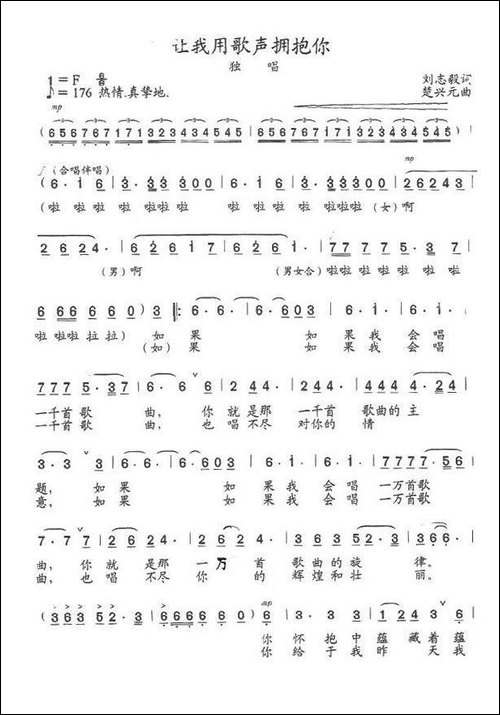 让我用歌声拥抱你
独 唱
1=F
刘志毅词
♪=176 热情.真挚地.
楚兴元曲
mp
(656767171323434545 | 656767171323434545) |
(合唱伴唱)
mp
(6·16 | 3·33300 | 6·16 | 3·33300) | 26243
(啦 啦 啦 啦 啦啦啦 啦 啦 啦 啦 啦啦啦 (女)啊
2624· | 62617 | 626· | 77775·37
(男)啊 (男女合)啦啦啦啦啦 啦 啦
666660)3 ‖: 6·6· | 6·603 | 6·i· | 6·i·i
啦啦啦 拉拉) 如 果 如 果 我 会 唱
(如) 果 如 果 我 会 唱
7775·37 | 6·6 6 | 624· | 4442· | 4444·24
一千首歌 曲, 你 就 是那 一千首 歌曲的 主
一千首歌 曲, 也 唱不尽 对你的 情
3·3· 3 | 6·6· | 6·603 | 6·i· | 6·i·i | 7777·56
题, 如 果 如 果 我 会 唱 一万首歌
意, 如 果 如 果 我 会 唱 一万首歌
7·77 | 2624· | 2·626· | 333·523· | 366·
曲, 你 就 是那 一 万 首 歌曲的旋 律。
曲, 也 唱 不尽 你 的 辉煌和壮 丽。
mp
(363523· | 66666 0) 6 | 3·33 | 124 3 6
你 怀 抱 中 蕴 藏着 蕴
你 给 于 我 昨 天 我